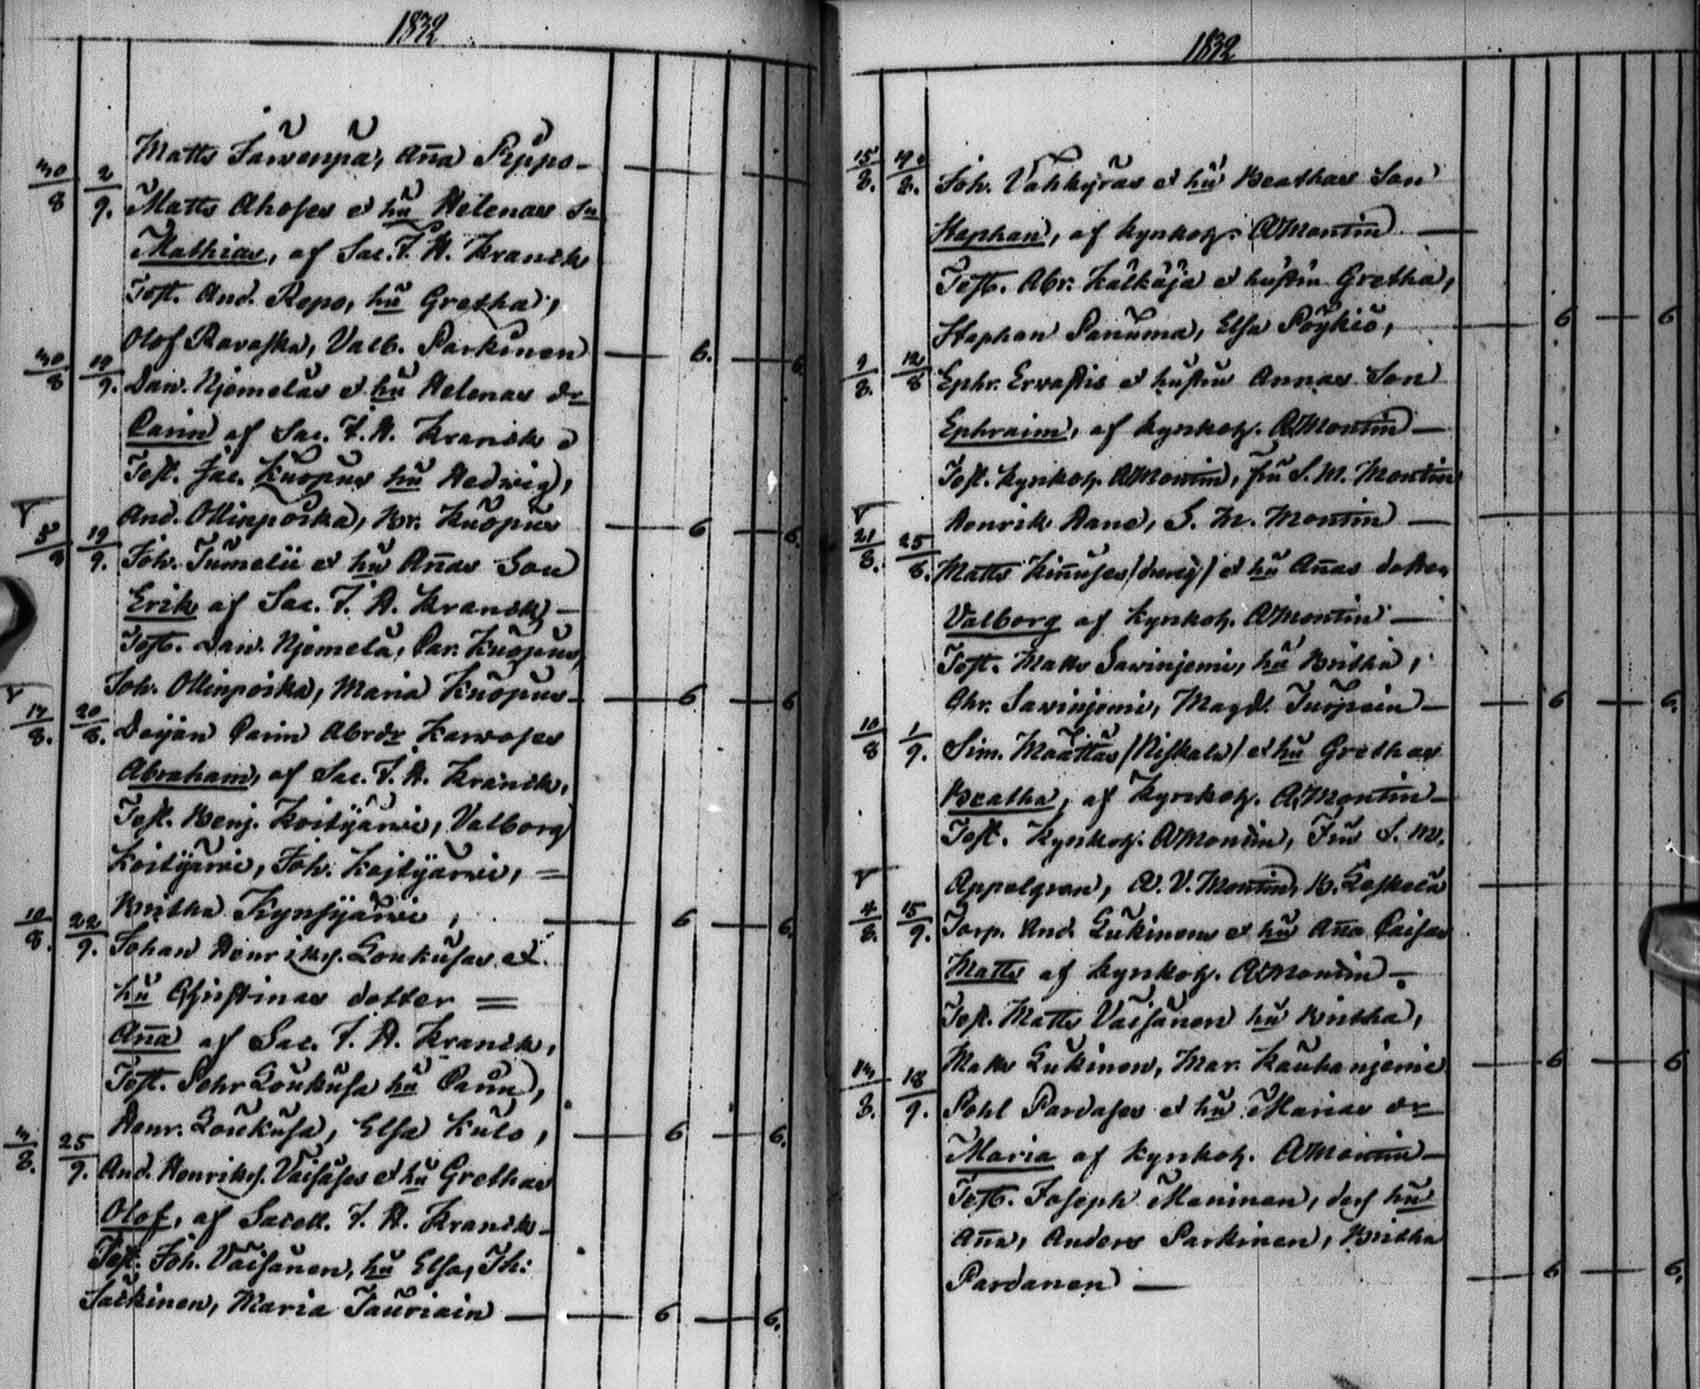 1832
Matts Järwenpä, Ana Pyppo –
30/8 2/9. Matts Ahoses et hu Helenas Sn
Mathias, af Sac. J. H. Kranck
Test. And. Repo, hu Gretha,
Olof Ravaska, Valb. Parkinen — 6. — 6.
30/8 19/9. Dan. Njemeläs et hu Helenas dr
Carin af Sac. J. H. Kranck
Test. Jac. Kuopus hu Hedwig,
And. Ollinpoika, Br. Kuopus — 6 — 6.
5/8 19/9. Joh. Tumelii et hu Anas Son
Erik af Sac. J. H. Kranck –
Test. Dan. Njemelä, Car. Kuopus,
Joh. Ollinpoika, Maria Kuopus – 6 — 6
17/8. 20/8. Dejan Carin Abrdr Karvoses
Abraham, af Sac. J. H. Kranck,
Test. Benj. Koitijärwi, Valborg
Koitijärwi, Joh. Kojtijärwi, =
Britha Kynsijärwi, — 6 — 6.
10/8. 22/9. Johan Henriks. Loukusas et
hu Christinas dotter =
Ana af Sac. J. H. Kranck,
Test. Pehr Loukusa hu Carin,
Henr. Loukusa, Elsa Kulo, — 6 — 6.
3/8. 25/9. And. Henriks. Vaisäses et hu Grethas
Olof, af Sacell. J. H. Kranck –
Test. Joh. Väisänen, hu Elsa, Joh:
Säkinen, Maria Tauriain — 6 — 6.
1832
15/8. 19/8. Joh. Vahkyräs et hu Beathas Son
Staphan, af kyrkoh. A Montin —
Test. Abr. Kälkäjä et hustru Gretha,
Staphan Panuma, Elsa Pöykiö, — 6 — 6
9/8. 12/8 Ephr. Ervastis et hustru Annas Son
Ephraim, af kyrkoh. A Montin —
Test. kyrkoh. A Montin, fru S. M. Montin
Henrik Aane, S. M. Montin —
21/8. 25/8. Matts Kinuses (dreng) et hu Anas dotter
Valborg af kyrkoh. A Montin —
Test. Matts Sarvinjemi, hu Britha,
Chr. Sarvinjemi, Magd. Turpein — 6 — 6.
10/8 1/9. Sim. Määttäs (Niskala) et hu Grethas
Beatha, af kyrkoh. A Montin —
Test. kyrkoh. A Montin, Fru S. M.
Appelgren, A. V. Montin, B. Leskelä
4/8. 15/9. Torp. And. Lukinens et hu Ana Caisas
Matts af kyrkoh. A Montin –.
Test. Matts Väisänen hu Britha,
Matts Lukinen, Mar. Kauhanjemi — 6 — 6
14/8. 18/9. Pehl Pardases et hu Marias dr
Maria af kyrkoh. A Montin —
Test. Joseph Maninen, des hu
Ana, Anders Parkinen, Britha
Pardanen — 6 — 6.